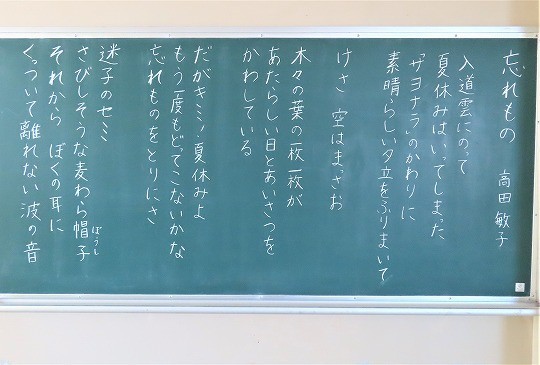 忘れもの　高田敏子
入道雲にのって
夏休みはいってしまった
「サヨナラ」のかわりに
素晴らしい夕立をふりまいて
けさ　空はまっさお
木々の葉の一枚一枚が
あたらしい日とあいさつを
かわしている
だがキミ！夏休みよ
もう一度もどってこないかな
忘れものをとりにさ
迷子のセミ
さびしそうな麦わら帽子
ぼうし
それから　ぼくの耳に
くっついて離れない波の音